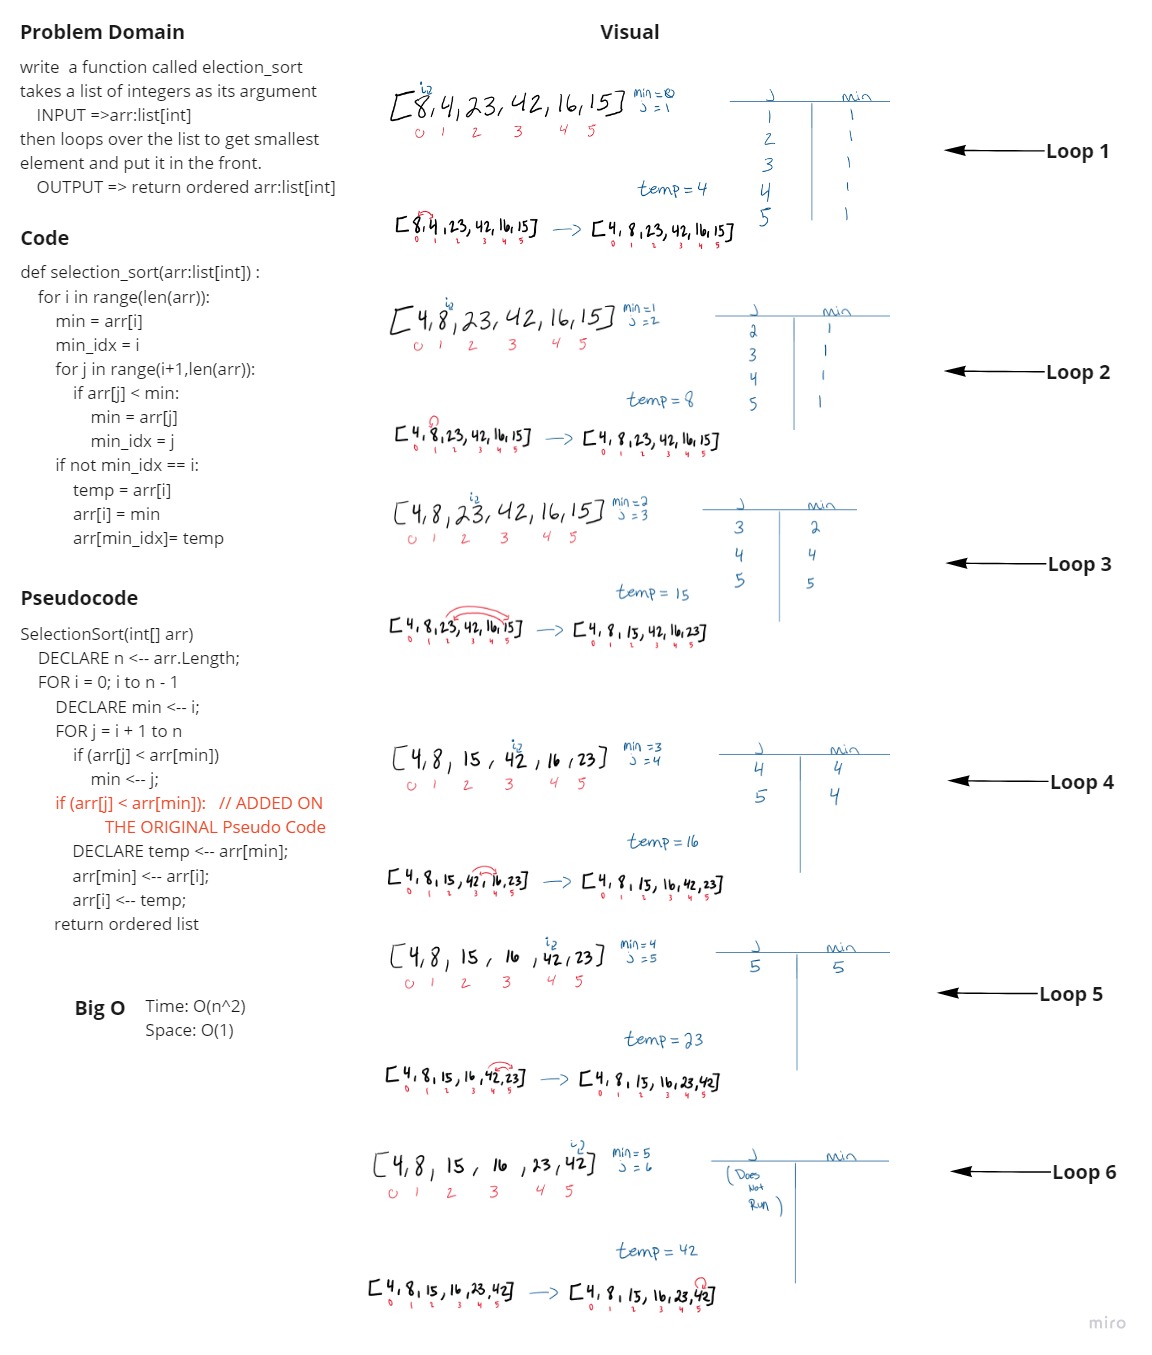 Problem Domain
write  a function called election_sort
takes a list of integers as its argument
INPUT =>arr:list[int]
then loops over the list to get smallest
element and put it in the front.
OUTPUT => return ordered arr:list[int]
Code
def selection_sort(arr:list[int]) :
for i in range(len(arr)):
min = arr[i]
min_idx = i
for j in range(i+1,len(arr)):
if arr[j] < min:
min = arr[j]
min_idx = j
if not min_idx == i:
temp = arr[i]
arr[i] = min
arr[min_idx]= temp
Pseudocode
SelectionSort(int[] arr)
DECLARE n <-- arr.Length;
FOR i = 0; i to n - 1
DECLARE min <-- i;
FOR j = i + 1 to n
if (arr[j] < arr[min])
min <-- j;
if (arr[j] < arr[min]):   // ADDED ON
THE ORIGINAL Pseudo Code
DECLARE temp <-- arr[min];
arr[min] <-- arr[i];
arr[i] <-- temp;
return ordered list
Big O
Time: O(n^2)
Space: O(1)
Visual
[8,4,23,42,16,15]
0 1 2 3 4 5
min=0
J=1
J min
1 1
2 1
3 1
4 1
5 1
temp=4
[8,4,23,42,16,15] → [4,8,23,42,16,15]
0 1 2 3 4 5 0 1 2 3 4 5
Loop 1
[4,8,23,42,16,15]
0 1 2 3 4 5
min=1
J=2
J min
2 1
3 1
4 1
5 1
temp=8
[4,8,23,42,16,15] → [4,8,23,42,16,15]
0 1 2 3 4 5 0 1 2 3 4 5
Loop 2
[4,8,23,42,16,15]
0 1 2 3 4 5
min=2
J=3
J min
3 2
4 4
5 5
temp=15
[4,8,23,42,16,15] → [4,8,15,42,16,23]
0 1 2 3 4 5 0 1 2 3 4 5
Loop 3
[4,8,15,42,16,23]
0 1 2 3 4 5
min=3
J=4
J min
4 4
5 4
temp=16
[4,8,15,42,16,23] → [4,8,15,16,42,23]
0 1 2 3 4 5 0 1 2 3 4 5
Loop 4
[4,8,15,16,42,23]
0 1 2 3 4 5
min=4
J=5
J min
5 5
temp=23
[4,8,15,16,42,23] → [4,8,15,16,23,42]
0 1 2 3 4 5 0 1 2 3 4 5
Loop 5
[4,8,15,16,23,42]
0 1 2 3 4 5
min=5
J=6
J min
(Does
Not
Run)
temp=42
[4,8,15,16,23,42] → [4,8,15,16,23,42]
0 1 2 3 4 5 0 1 2 3 4 5
Loop 6
miro